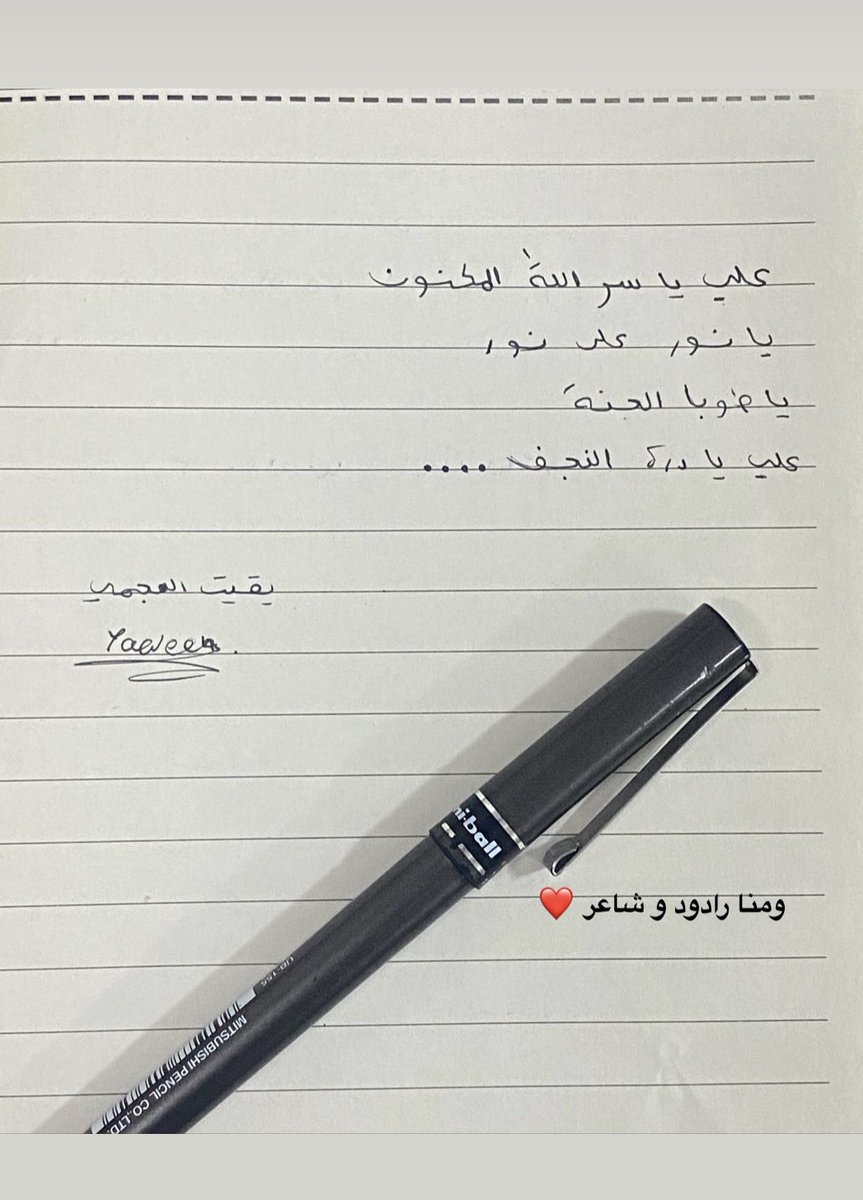 علي يا سر اللهَ المكنون
يا نور على نور
يا طوبا الجنةَ
علي يا درة النجف ....
يقيت العجمي
ni-ball
ومنا رادود و شاعر ❤️
UB-155
MITSUBISHI PENCIL CO.,LTD.